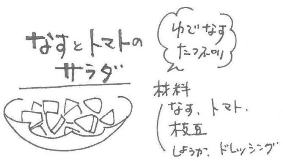 なすとトマトの
サラダ
ゆでなす
たっぷり
材料
なす、トマト、
枝豆
しょうが、ドレッシング